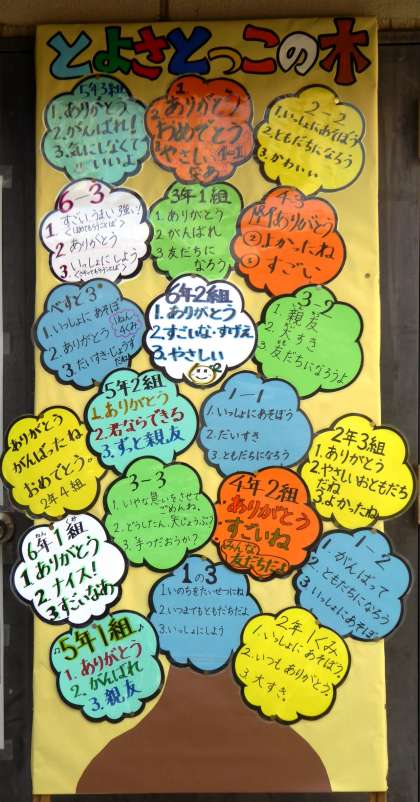 とよさとっこの木
5年3組
1.ありがとう
2.がんばれ!
3.気にしなくて
いいよ
1
ありがとう
おめでとう
やさしい
なぁ
4-1
2-2
1.いっしょにあそぼう
2.ともだちになろう
3.かわいい
6-3
1 すごい、うまい、強い!
2 ありがとう
3 いっしょにしよう
3年1組
1.ありがとう
2.がんばれ
3.友だちに
なろう
4-3
ありがとう
②よかったね
③すごい
べすと3
1.いっしょにあそぼ
2.ありがとう
3.だいすき
1ねん
4くみ
6年2組
1.ありがとう
2.すごいな・すげえ
3.やさしい
3-2
1.親友
2.大すき
3.友だちになろうよ
5年2組
1.ありがとう
2.君ならできる
3.ずっと親友
1-1
1.いっしょにあそぼう
2.だいすき
3.ともだちになろう
ありがとう
がんばったね
おめでとう
2年4組
2年3組
1.ありがとう
2.やさしいおともだち
だね
3.よかったね
3-3
1.いやな思いをさせて
ごめんね。
2.どうしたん、大じょうぶ?
3.手つだおうか?
4年2組
ありがとう
すごいね
みんな
友だちだよ
6年1組
1.ありがとう
2.ナイス!
3.すごいなあ
1-2
1.がんばって
2.ともだちになろう
3.いっしょにあそぼ
1の3
1.いのちをたいせつにね
2.いつまでもともだちだよ
3.いっしょにしよう
5年1組
1.ありがとう
2.がんばれ
3.親友
2年1くみ
1.いっしょにあそぼう。
2.いつもありがとう。
3.大すき。